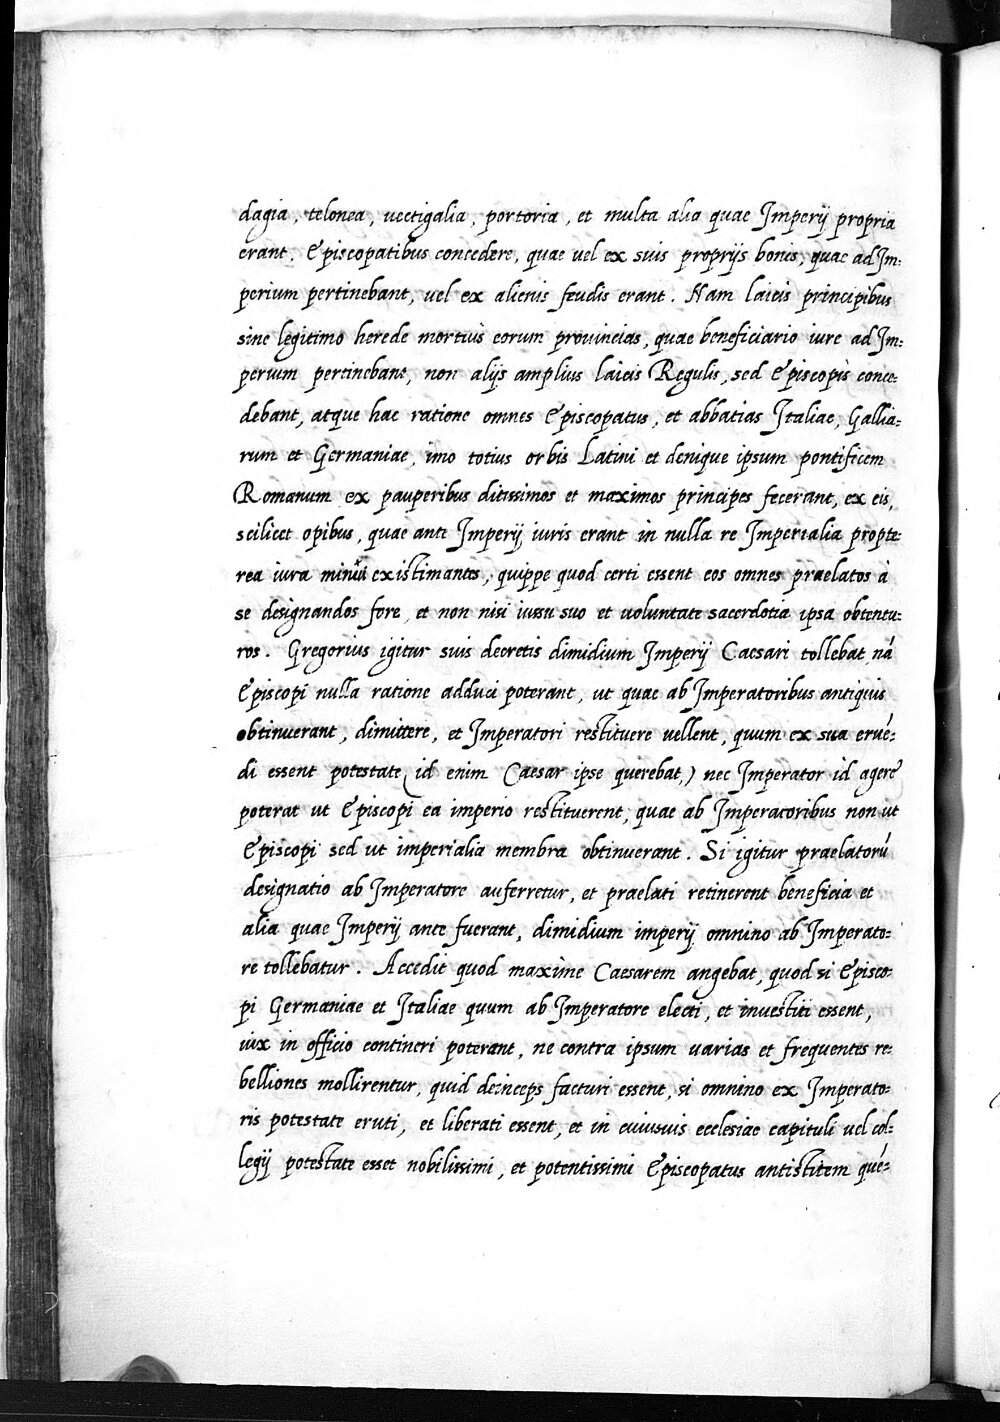 dagia, telonea, uectigalia, portoria, et multa alia quae Imperij propria
erant, Episcopatibus concedere, quae uel ex suis proprijs bonis, quae ad Im=
perium pertinebant, uel ex alienis feudis erant. Nam laicis principibus
sine legitimo herede mortuis eorum prouincias, quae beneficiario iure ad Im=
perium pertinebant, non alijs amplius laicis Regulis, sed Episcopis conce=
debant, atque hac ratione omnes Episcopatus, et abbatias Italiae, Gallia=
rum et Germaniae, imo totius orbis Latini et denique ipsum pontificem
Romanum ex pauperibus ditissimos et maximos principes fecerant, ex eis,
scilicet opibus, quae ante Imperij iuris erant in nulla re Imperialia propte=
rea iura minui existimantes, quippe quod certi essent eos omnes praelatos à
se designandos fore, et non nisi iussu suo et uoluntate sacerdotia ipsa obtentu=
ros. Gregorius igitur suis decretis dimidium Imperij Caesari tollebat, nã
Episcopi nulla ratione adduci poterant, ut quae ab Imperatoribus antiquis
obtinuerant, dimittere, et Imperatori restituere uellent, quum ex sua eruẽ=
di essent potestate (id enim Caesar ipse querebat,) nec Imperator id agere
poterat ut Episcopi ea imperio restituerent, quae ab Imperatoribus non ut
Episcopi sed ut imperialia membra obtinuerant. Si igitur praelatorũ
designatio ab Imperatore auferretur, et praelati retinerent beneficia et
alia quae Imperij ante fuerant, dimidium imperij omnino ab Imperato=
re tollebatur. Accedit quod maxime Caesarem angebat, quod si Episco=
pi Germaniae et Italiae quum ab Imperatore electi, et inuestiti essent,
uix in officio contineri poterant, ne contra ipsum uarias et frequentes re=
belliones mollirentur, quid deinceps facturi essent, si omnino ex Imperato=
ris potestate eruti, et liberati essent, et in cuiusuis ecclesiae capituli uel col=
legij potestate esset nobilissimi, et potentissimi Episcopatus antistitem quẽ=